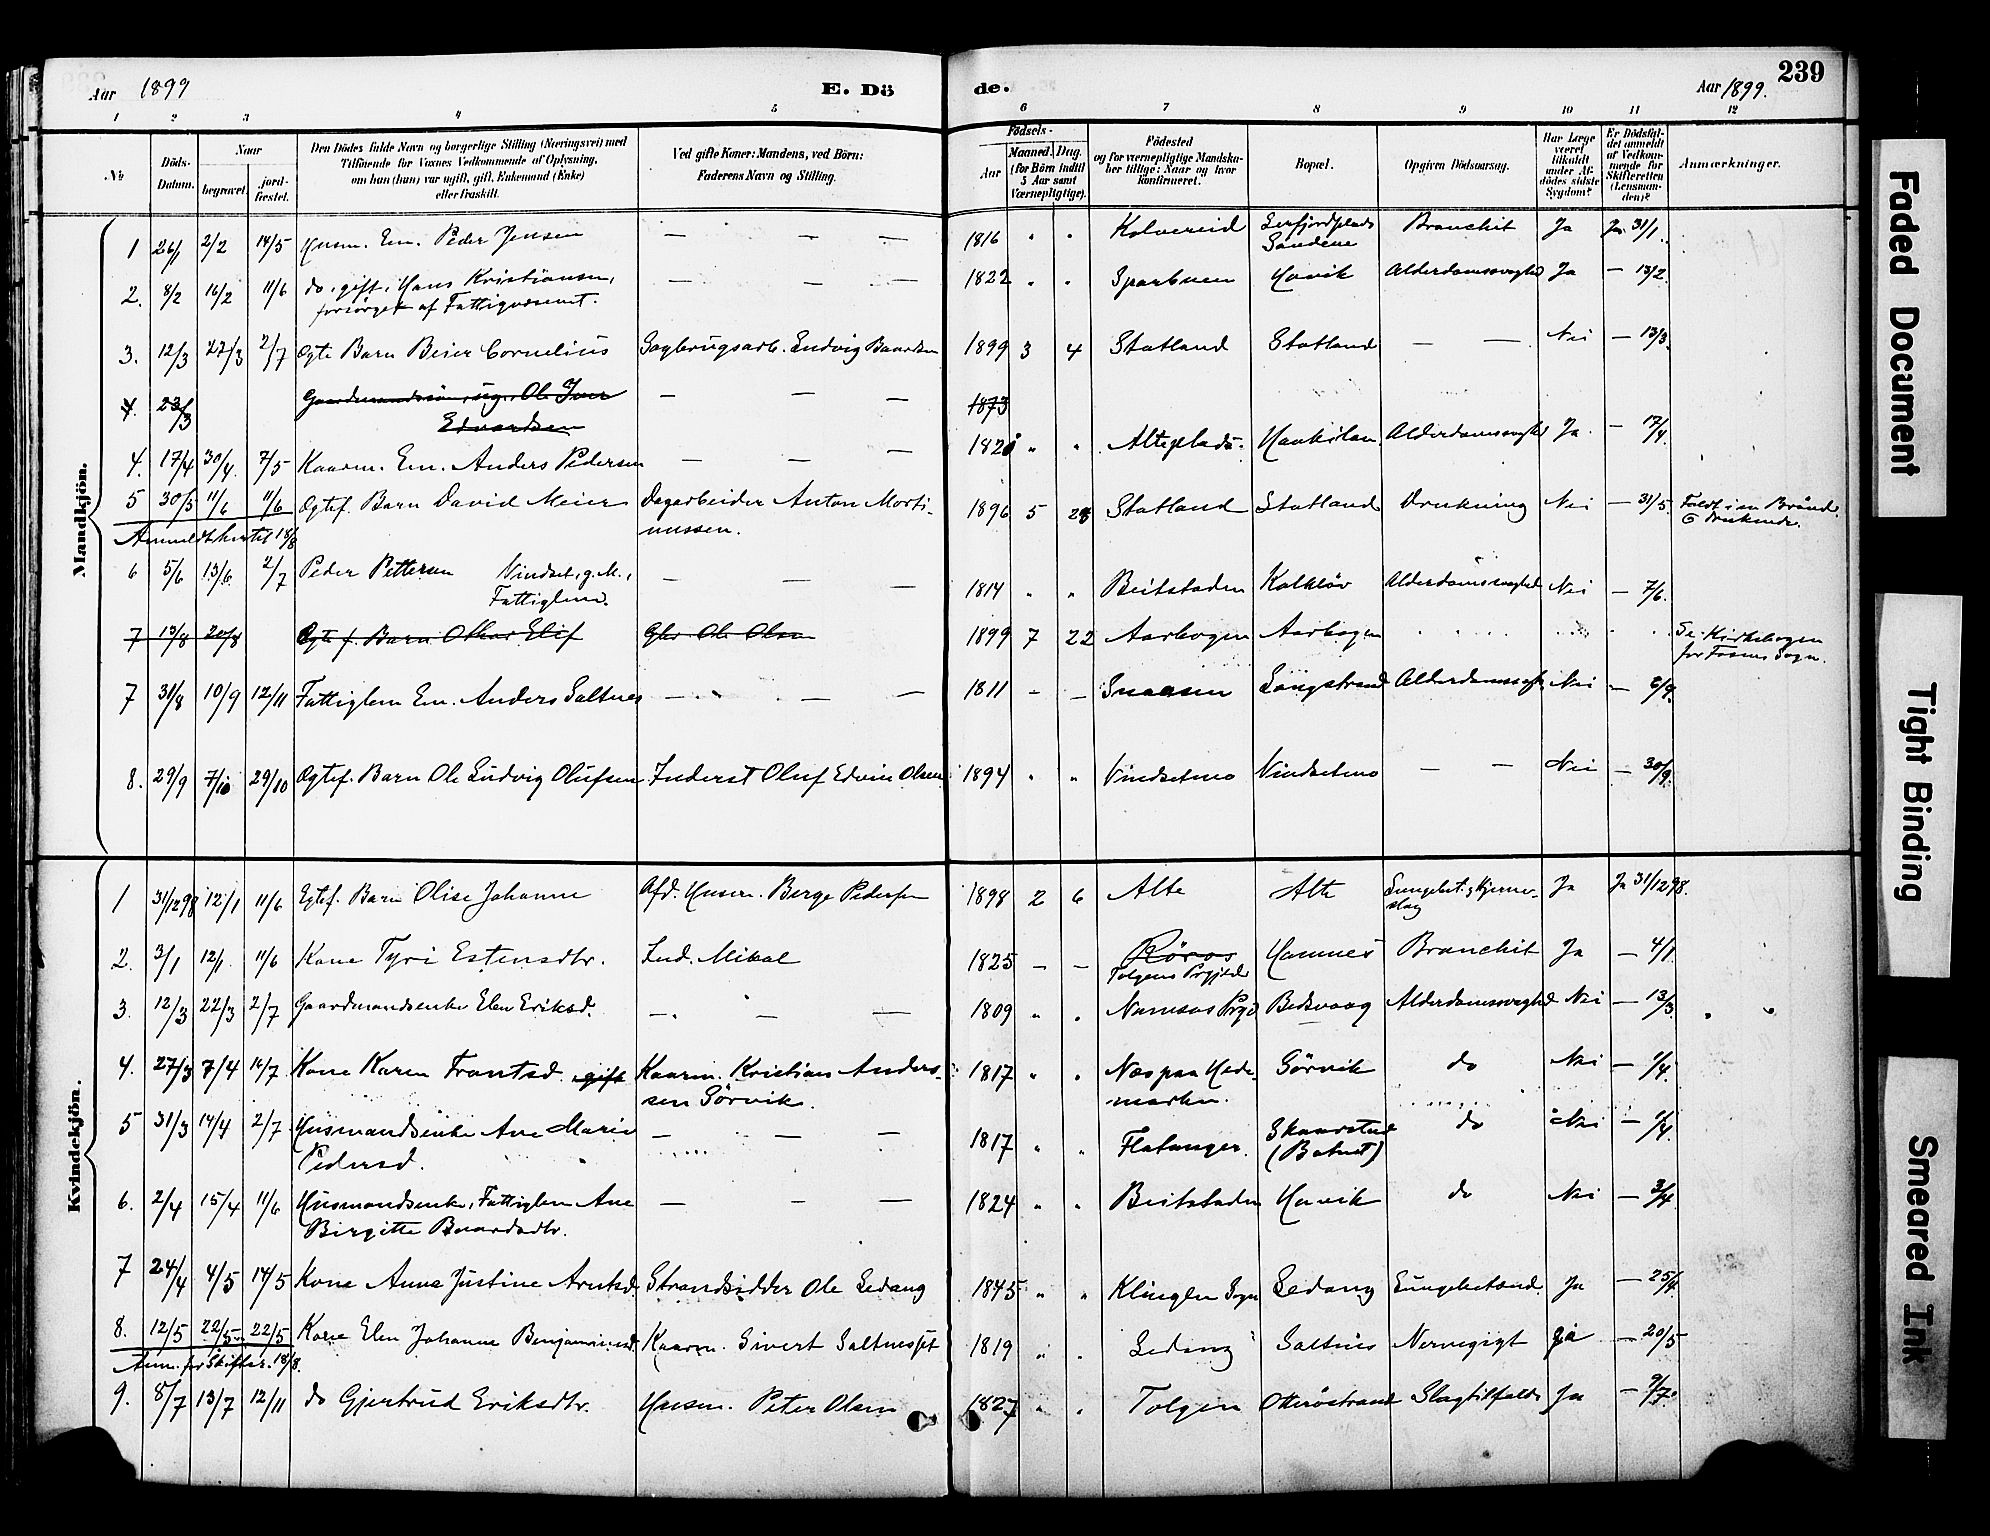 Aar 1899
E. Dö
de.
Aar 1899.
239
1 2 3 4 5 6 7 8 9 10 11 12
No
Döds-Datum.
Naar
begravet.
jord-fæstet.
Den Dödes fulde Navn og borgerlige Stilling (Næringsvei) med
Tilföiende for Voxnes Vedkommende af Oplysning,
om han (hun) var ugift, gift, Enkemand (Enke)
eller fraskilt.
Ved gifte Koner: Mandens, ved Börn:
Faderens Navn og Stilling.
Födsels-
Aar
Maaned. Dag.
(for Börn indtil
5 Aar samt
Værnepligtige).
Födested
og for værnepligtige Mandska-
ber tillige: Naar og hvor
konfirmeret.
Bopæl.
Opgiven Dödsaarsag.
Har Læge
været
tilkaldt
under Af-
dödes sidste
Sygdom?
Er Dödsfal-
det anmeldt
af Vedkom-
mende for
Skifteretten
(Lensman-
den)?
Anmærkninger.
Mandkjön.
1 26/1 2/2 14/5 Husm. Em. Peder Jensen — — — 1816 " " Kolvereid Sandene Bronchit Ja Ja 31/1.
2. 8/2 16/2 11/6 do, gift, Hans Kristiansen, — — — 1822 " " Sparbuen Hovik Alderdomssvaghed Ja — 13/2.
forsörget af Fattigvæsenet.
3. 12/3 27/3 2/7 Ægte Barn Beier Cornelius Sagbrugsarb. Ludvig Baardsen 1899 3 4 Statland Statland — — Nei — 13/3.
4. 23/3 Gaardmandssön, ug. Ole Iver — — 1873
Edvardsen
4. 17/4 30/4. 7/5 Kaarm. Em. Anders Pedersen — — — 1820 " " Alteplads. Alderdomssvaghed Ja. — 17/4.
5 30/5 11/6 11/6 Ægtef. Barn David Meier Dagarbeider Anton Morti- 1896 5 28 Statland Statland Drukning Nei — 31/5 Faldt i en Brönd
nussen. & druknede.
Anmeldt 18/8
6 5/6 13/6. 2/7 Peder Pettersen Vindset, g. M., — — — 1814 " " Beitstaden Kalklöv Alderdomssvaghed Nei — 7/6.
Fattiglem.
7 13/8 20/8 Ægte f. Barn Othar Elif Gbr Ole Olsen 1899 7 22 Aarbogen Aarbogen Se Kirkebogen
for Fosnes Sogn.
7 31/8 10/9 12/11 Fattiglem Em. Anders Saltnes — — — 1811 — — Snaasen Langstrand Alderdomssvagh. Nei — 6/9.
8. 29/9 7/10 29/10 Ægtef. Barn Ole Ludvig Olufsen Inderst Oluf Edvin Olsen 1894 " " Vindsetmo Vindsetmo — — Nei — 30/9.
Kvindekjön.
1 31/12 98 12/1 11/6 Egtef. Barn Olise Johanne Afd. Husm. Berge Pedersen 1898 2 6 Alte Alte Lungebet. & Hjerne- Ja Ja 31/12 98.
slag
2. 3/1 12/1. 11/6 Kone Tyri Estensdtr. Ind. Mikal 1825 — — Röros Hamnes Bronchit Ja — 4/1
Tolgens Prgjeld
3. 12/3 22/3 2/7 Gaardmandsenke Elen Eriksd. — — — 1809 " " Namsos Prgj Bedsvaag Alderdomssvaghed Nei — 13/3.
4. 27/3 7/4 16/7 Kone Karen Frantsd. gift Kaarm. Kristian Anders- 1817 " " Næs paa Hede- Sörvik do Nei — 1/4.
sen Sörvik. marken.
5 31/3 14/4 2/7 Husmandsenke Ane Marie — — — 1817 " " Flatanger. Skaarstad do Nei — 1/4.
Pedersd. (Botnet)
6. 2/4 15/4 11/6 Husmandsenke, Fattiglem Ane — — — 1824 " " Beitstaden Hovik do Nei — 3/4.
Birgitte Baardsdtr.
7 24/4 4/5 14/5 Kone Anna Justine Arntsd. Strandsidder Ole Sedang 1845 " " Klingen Sogn Sedang Lungebetænd. Ja — 25/4.
8. 12/5 22/5 22/5 Kone Elen Johanne Benjaminsd. Kaarm. Sivert Saltnesset 1819 " " Sedang Saltnes Nervegigt Ja — 20/5
Anm. for Skifter. 18/8.
9. 8/7 13/7 12/11 do Gjertrud Eriksdtr. Husm. Peter Olsen 1827 " " Tolgen Otteröstrand Slagtilfælde Ja — 9/7.
Faded Document
Tight Binding
Smeared Ink